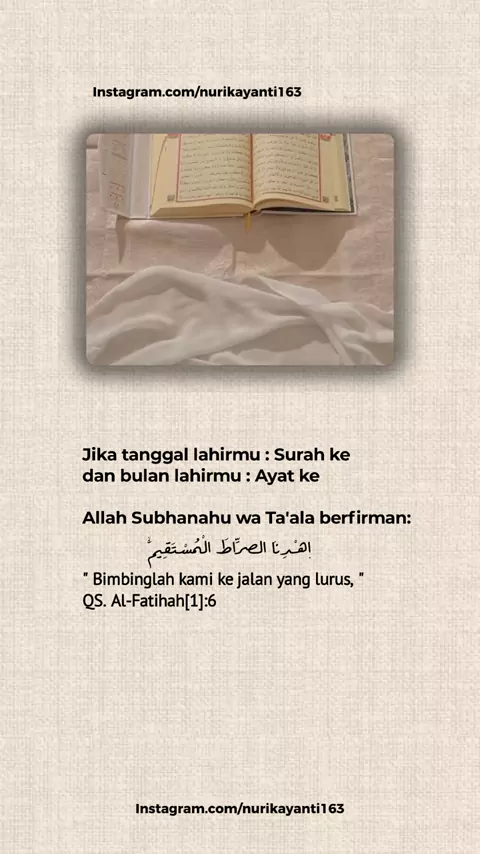 Instagram.com/nurikayanti163
Jika tanggal lahirmu : Surah ke
dan bulan lahirmu : Ayat ke
Allah Subhanahu wa Ta'ala berfirman:
اِهْدِنَا الصِّرَاطَ الْمُسْتَقِيْمَۙ
" Bimbinglah kami ke jalan yang lurus, "
QS. Al-Fatihah[1]:6
Instagram.com/nurikayanti163